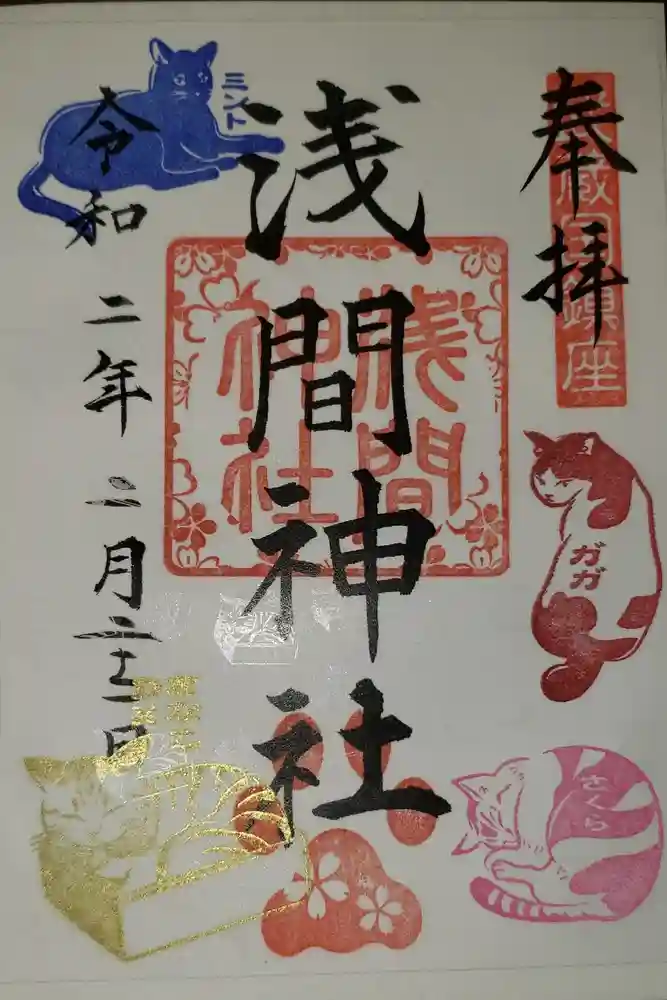 奉拝
武蔵国鎮座
浅間神社
浅間
神社
令和二年二月二十一日
ミント
ガガ
さくら